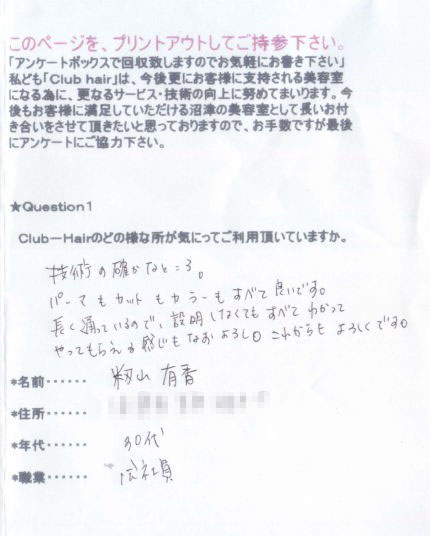 このページを、プリントアウトしてご持参下さい。
「アンケートボックスで回収致しますのでお気軽にお書き下さい」
私ども「Club hair」は、今後更にお客様に支持される美容室
になる為に、更なるサービス・技術の向上に努めてまいります。今
後もお客様に満足していただける沼津の美容室として長いお付
き合いをさせて頂きたいと思っておりますので、お手数ですが最後
にアンケートにご協力下さい。
★Question1
Club－Hairのどの様な所が気にってご利用頂いていますか。
技術の確かなところ。
パーマもカットもカラーもすべて良いです。
長く通っているので、説明しなくてもすべてわかって
やってもらえる感じもなおよろし。これからもよろしくです。
*名前‥‥‥ 籾山 有香
*住所‥‥‥
*年代‥‥‥ 30代
*職業‥‥‥ 会社員